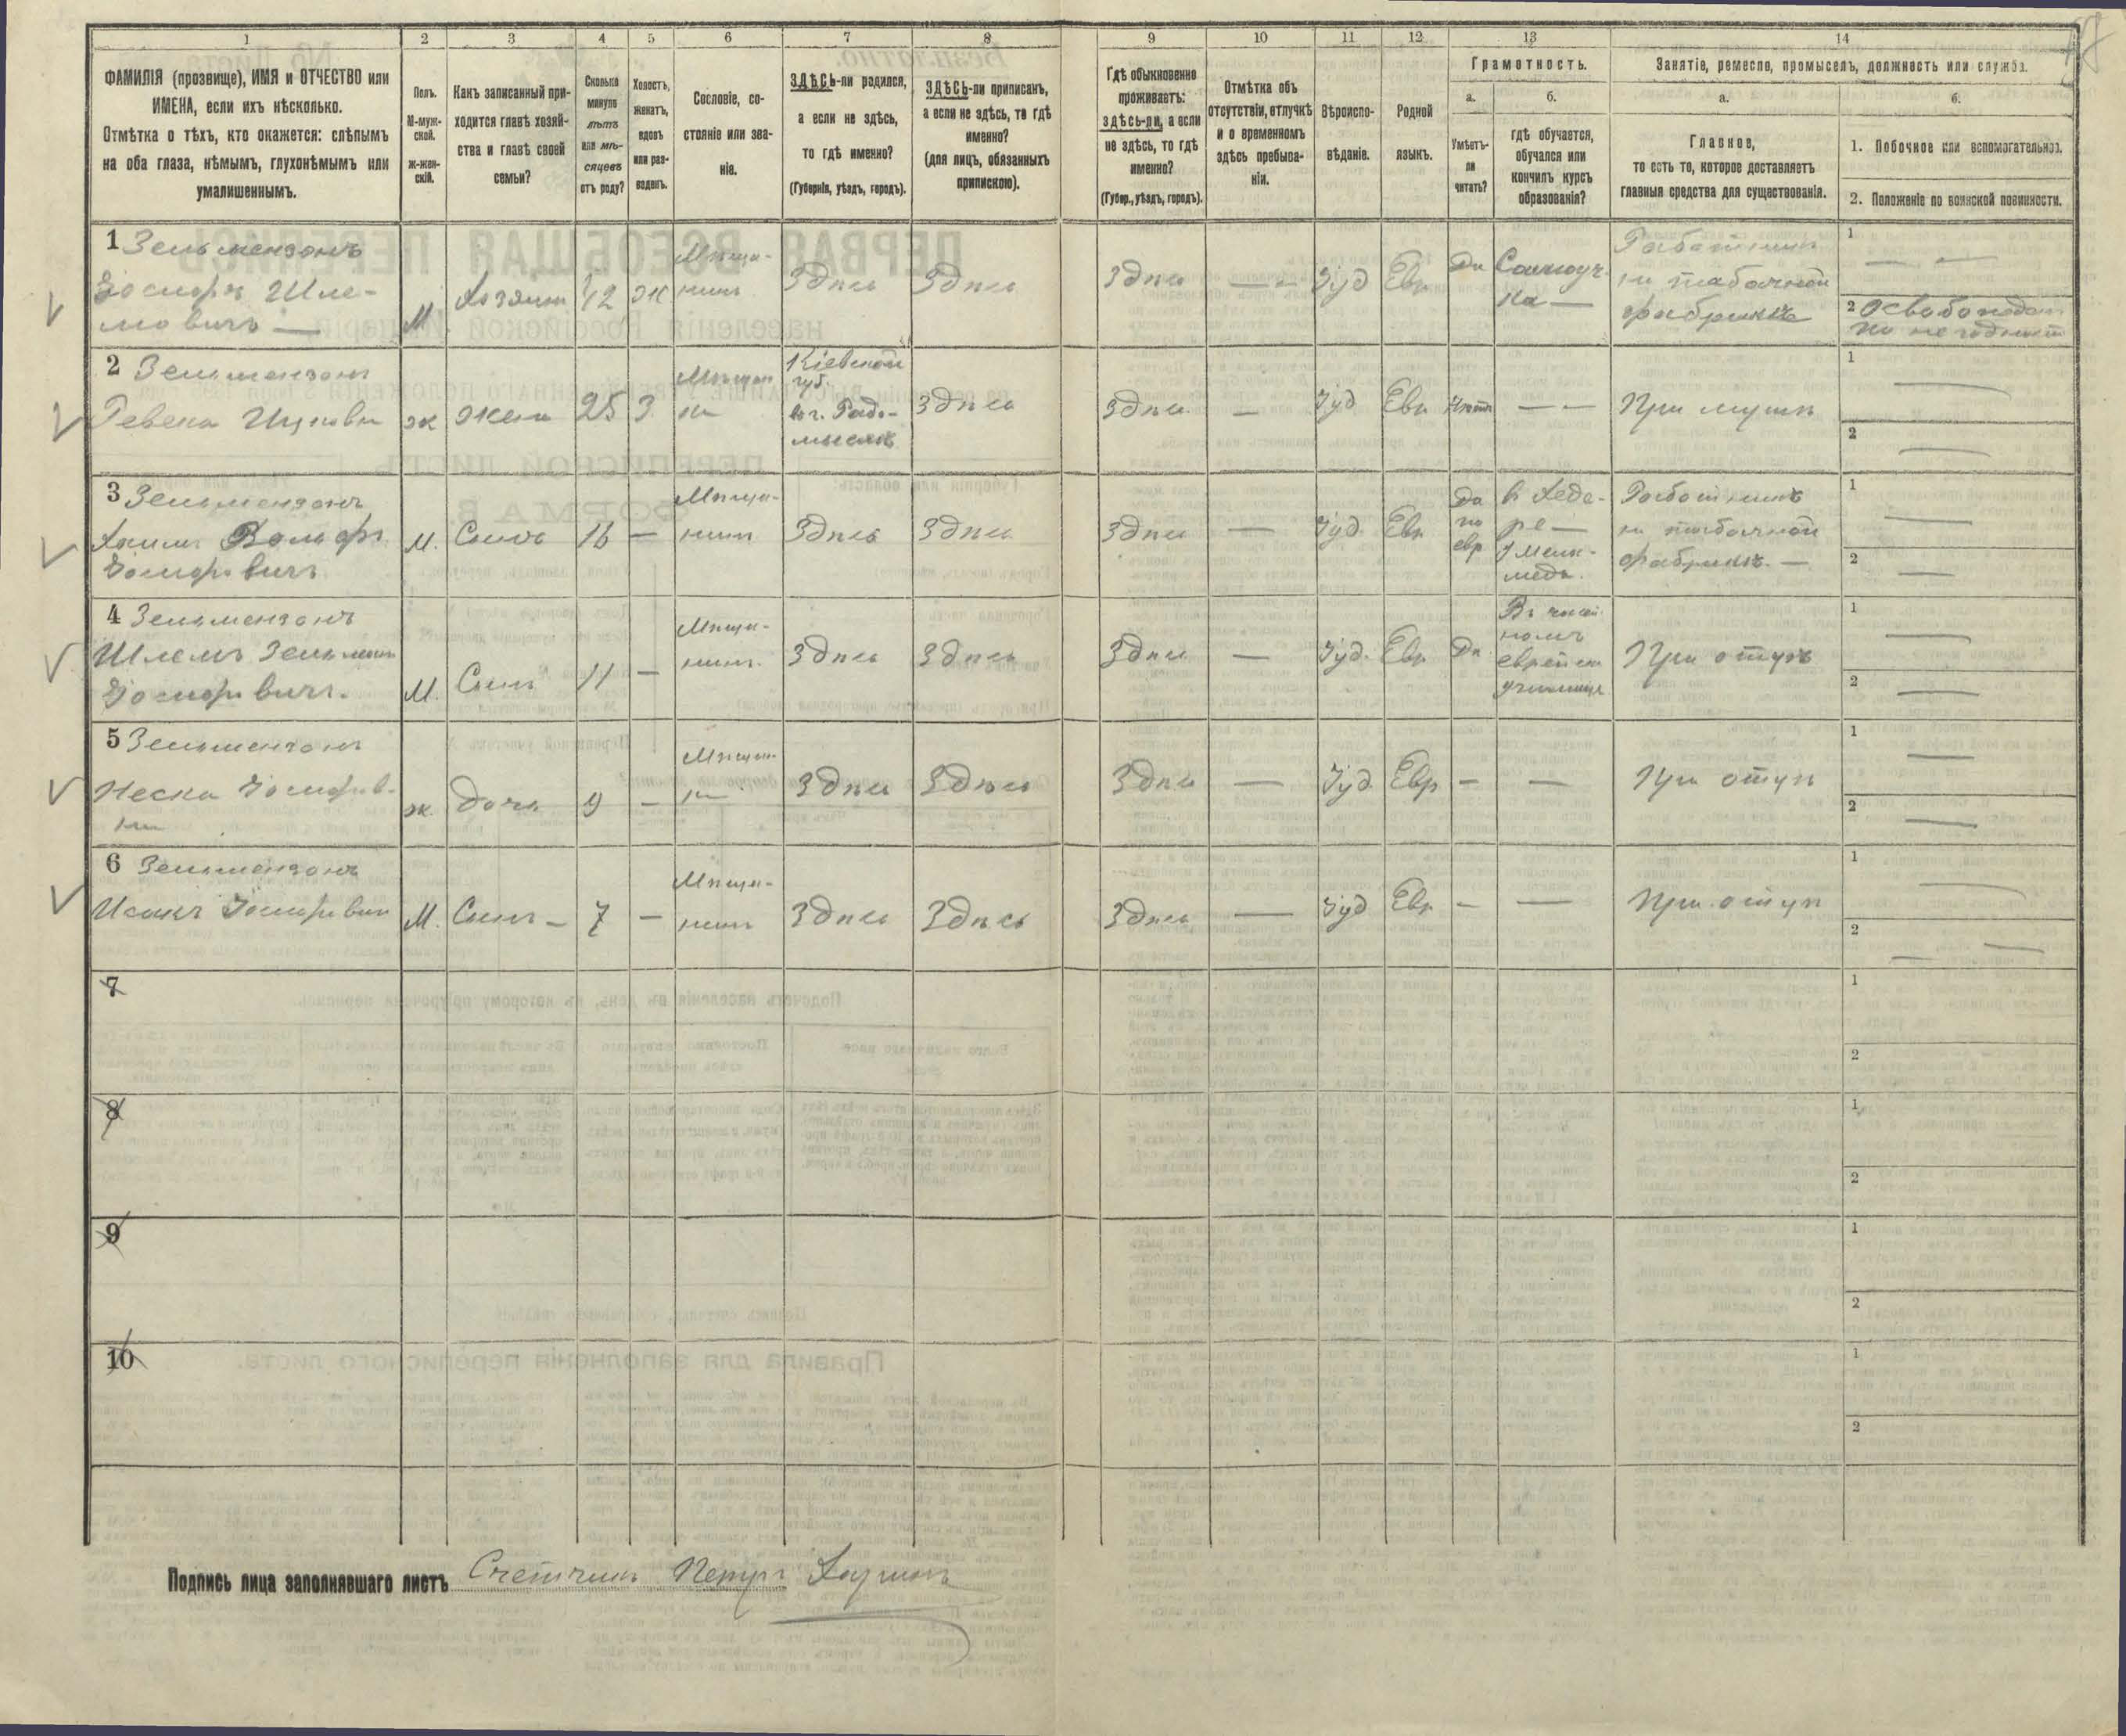 1
2
3
4
5
6
7
8
9
10
11
12
13
14
ФАМИЛІЯ (прозвище), ИМЯ и ОТЧЕСТВО или
ИМЕНА, если ихъ нѣсколько.
Отмѣтка о тѣхъ, кто окажется: слѣпымъ
на оба глаза, нѣмымъ, глухонѣмымъ или
умалишеннымъ.
Полъ.
М-муж-
ской.
Ж-жен-
скій.
Какъ записанный при-
ходится главѣ хозяй-
ства и главѣ своей
семьи?
Сколько
минуло
лѣтъ
или мѣ-
сяцевъ
отъ роду?
Холостъ,
женатъ,
вдовъ
или раз-
веденъ.
Сословіе, со-
стояніе или зва-
ніе.
ЗДѢСЬ-ли родился,
а если не здѣсь,
то гдѣ именно?
(Губернія, уѣздъ, городъ).
ЗДѢСЬ-ли приписанъ,
а если не здѣсь, то гдѣ
именно?
(для лицъ, обязанныхъ
припискою).
Гдѣ обыкновенно
проживаетъ:
здѣсь-ли, а если
не здѣсь, то гдѣ
именно?
(Губер., уѣздъ, городъ).
Отмѣтка объ
отсутствіи, отлучкѣ
и о временномъ
здѣсь пребыва-
ніи.
Вѣроиспо-
вѣданіе.
Родной
языкъ.
Грамотность.
а.
Умѣетъ-
ли
читать?
б.
гдѣ обучается,
обучался или
кончилъ курсъ
образованія?
Занятіе, ремесло, промыселъ, должность или служба.
а.
Главное,
то есть то, которое доставляетъ
главныя средства для существованія.
б.
1. Побочное или вспомогательное.
2. Положеніе по воинской повинности.
1 Зельмензонъ
Іосифъ Шле-
мовичъ —
М
Хозяинъ
42
Ж
Мѣща-
нинъ
Здѣсь
Здѣсь
Здѣсь
— —
Іуд
Евр
Да
Самоуч-
ка —
Работникъ
на табачной
фабрикѣ
1
— —
2 Освобожден
по негодности
2 Зельмензонъ
Ревека Ицковна
ж
жена
25
З
Мѣщан
ка
Кіевской
губ.
въ г. Радо-
мыслѣ
Здѣсь
Здѣсь
—
Іуд
Евр
Нѣтъ
— —
При мужѣ
1
—
2
—
3 Зельмензонъ
Хаимъ Вольфъ
Іосифовичъ
М.
Сынъ
16
—
Мѣща-
нинъ
Здѣсь
Здѣсь
Здѣсь
—
Іуд.
Евр
Да
по
евр
въ Хеде-
рѣ —
у мелам-
меда.
Работникъ
на табачной
фабрикѣ. —
1
—
2
—
4 Зельмензонъ
Шлемъ Зельманъ
Іосифовичъ.
М.
Сынъ
11
—
Мѣща-
нинъ.
Здѣсь
Здѣсь
Здѣсь
—
Іуд.
Евр
Да
Въ част
номъ
еврейск
училищѣ
При отцѣ
1
—
2
—
5 Зельмензонъ
Неска Іосифов-
на
ж.
Дочь
9
—
Мѣщан-
ка
Здѣсь
Здѣсь
Здѣсь
—
Іуд.
Евр
—
—
При отцѣ
1
—
2
—
6 Зельмензонъ
Исаакъ Іосифович
М.
Сынъ —
7
—
Мѣща-
нинъ
Здѣсь
Здѣсь
Здѣсь
—
Іуд
Евр
—
—
При отцѣ
1
—
2
— —
7
1
2
8
1
2
9
1
2
10
1
2
Подпись лица заполнявшаго листъ Счетчикъ Петръ